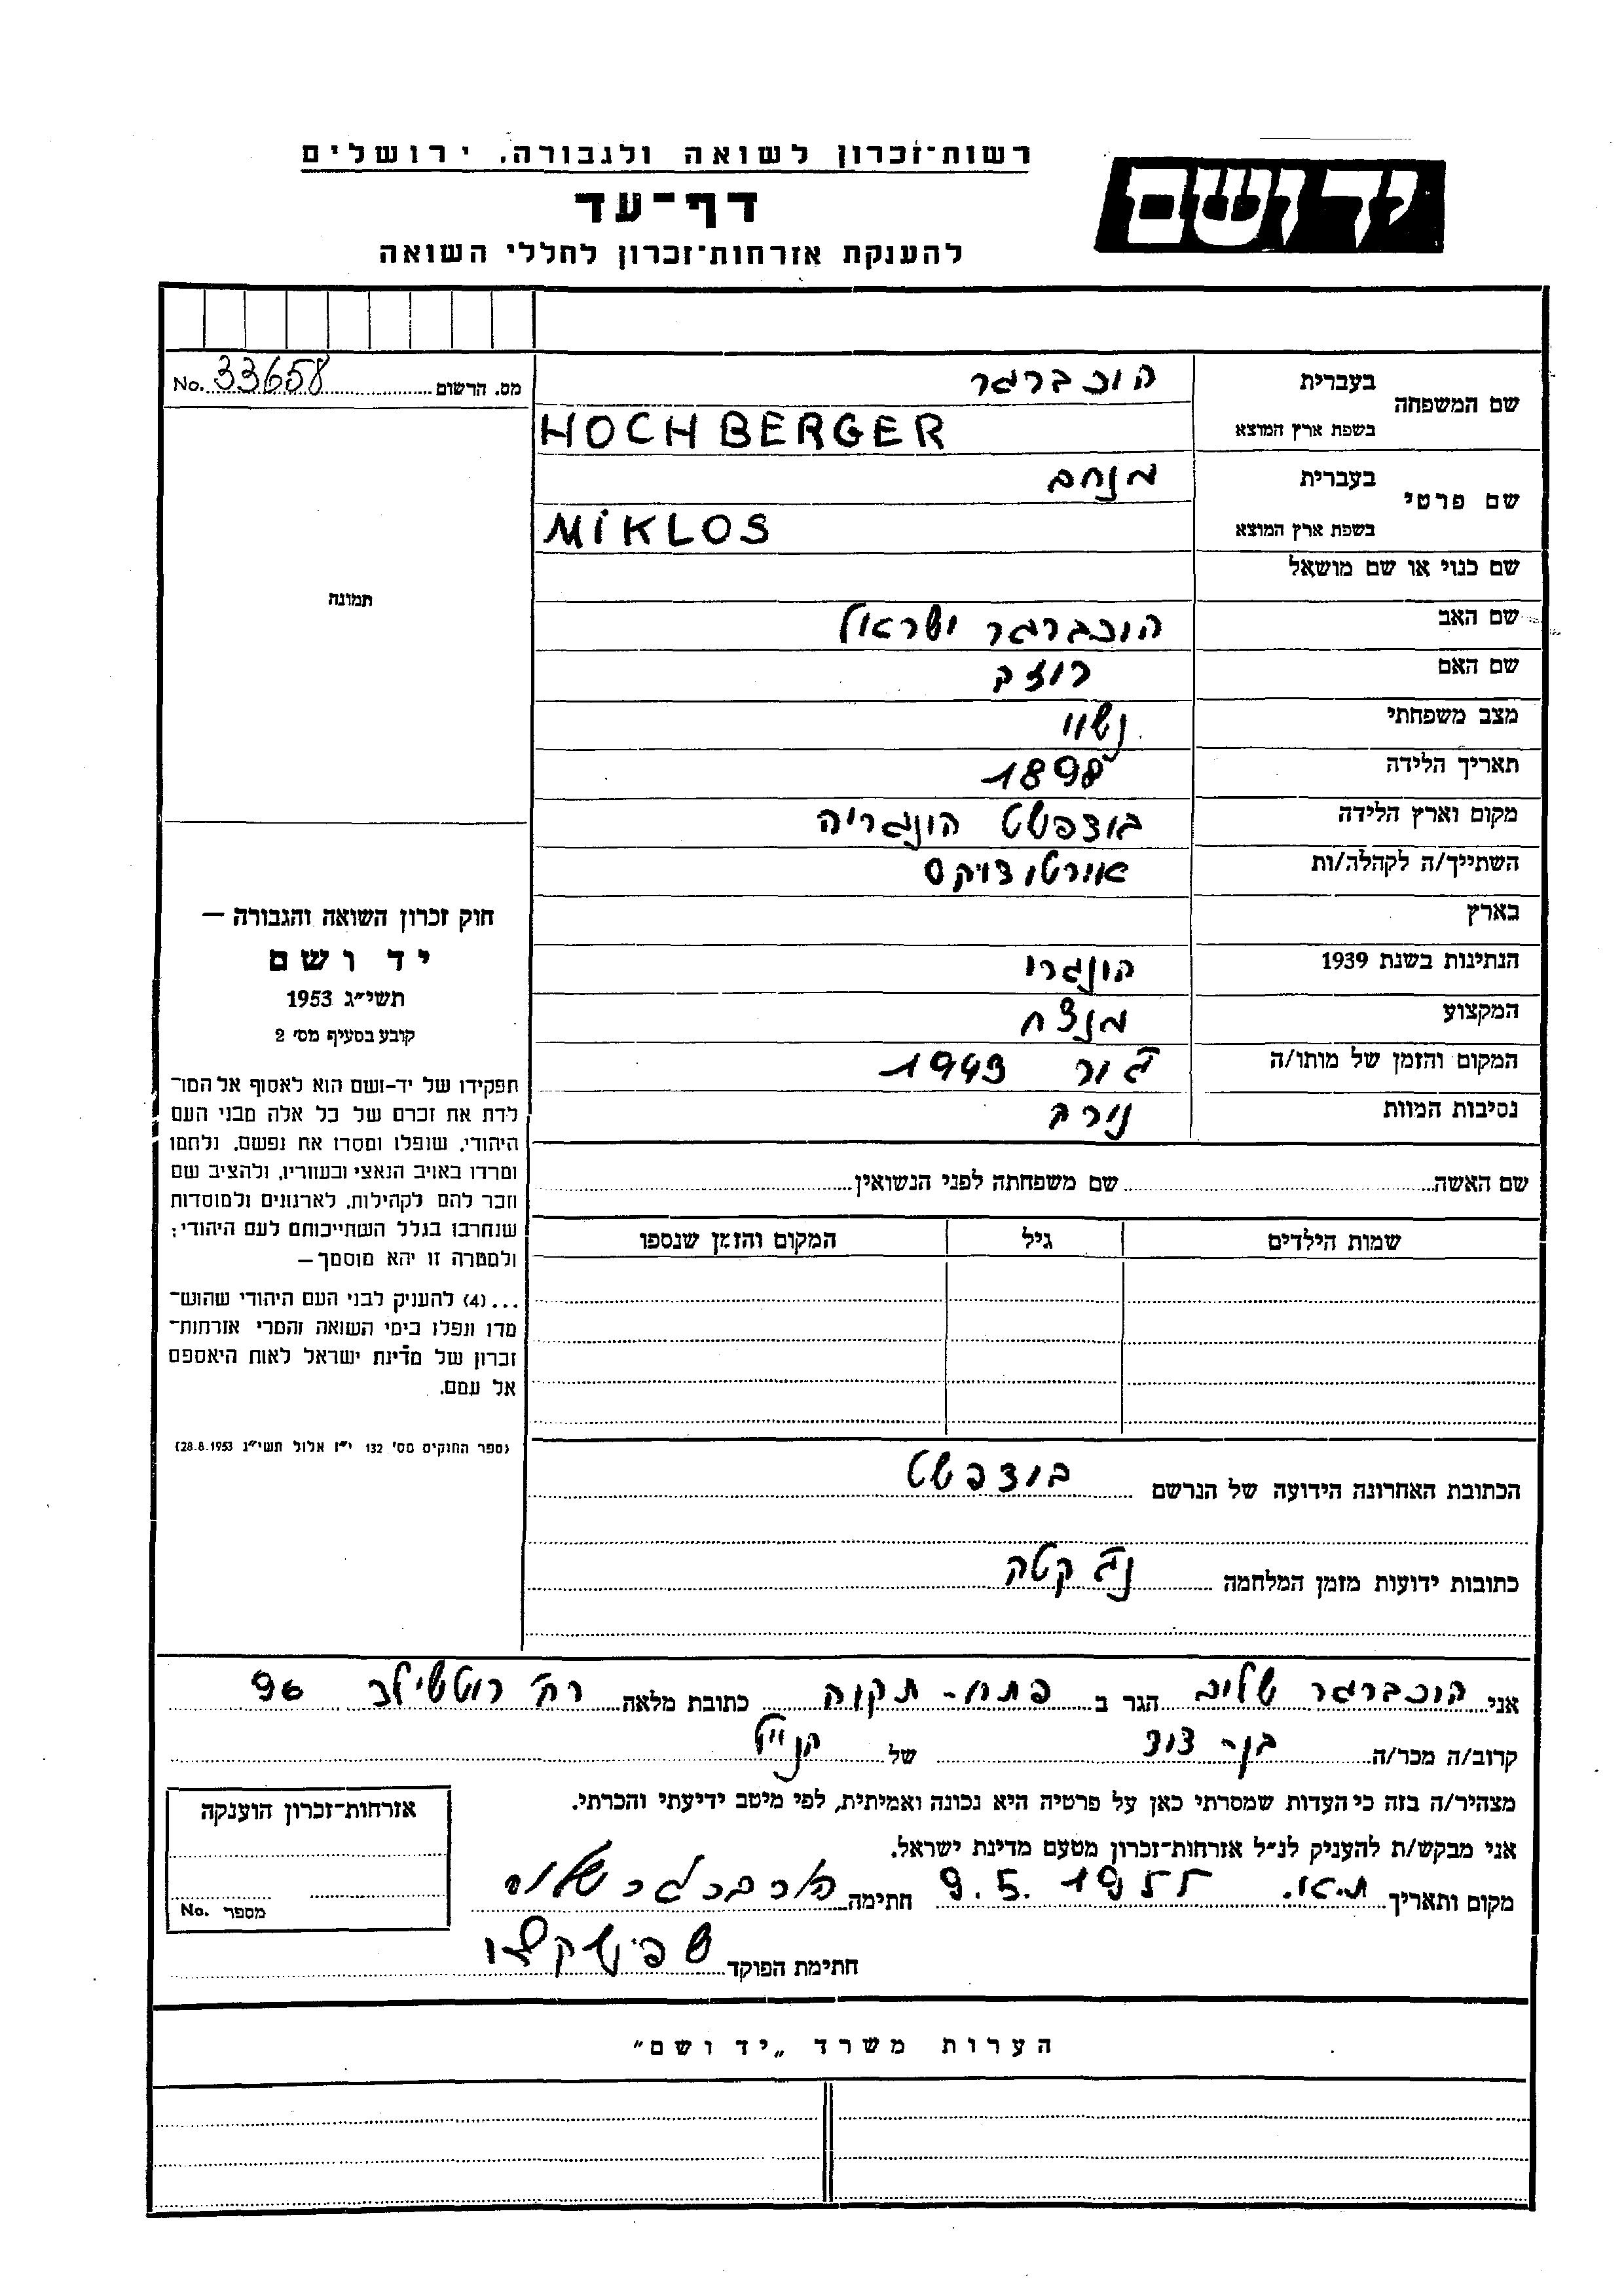 רשות־זכרון לשואה ולגבורה, ירושלים
יד ושם
דף־עד
להענקת אזרחות־זכרון לחללי השואה
מס. הרשום 33658 No.
תמונה
שם המשפחה
בעברית הוכברגר
בשפת ארץ המוצא HOCHBERGER
שם פרטי
בעברית מנחם
בשפת ארץ המוצא MIKLOS
שם כנוי או שם מושאל
שם האב הוכברגר ישראל
שם האם רוזה
מצב משפחתי נשוי
תאריך הלידה 1898
מקום וארץ הלידה בודפשט הונגריה
השתייך/ה לקהלה/ות אורטודוקס
בארץ
הנתינות בשנת 1939 הונגרי
המקצוע
המקום והזמן של מותו/ה ג'ור 1943
נסיבות המוות נורה
שם האשה שם משפחתה לפני הנשואין
שמות הילדים גיל המקום והזמן שנספו
חוק זכרון השואה והגבורה —
יד ושם
תשי״ג 1953
קובע בסעיף מס׳ 2
תפקידו של יד-ושם הוא לאסוף אל המו־
לדת את זכרם של כל אלה מבני העם
היהודי, שנפלו ומסרו את נפשם, נלחמו
ומרדו באויב הנאצי ובעוזריו, ולהציב שם
וזכר להם לקהילות, לארגונים ולמוסדות
שנחרבו בגלל השתייכותם לעם היהודי;
ולמטרה זו יהא מוסמך—
...(4) להעניק לבני העם היהודי שהוש־
מדו ונפלו בימי השואה והמרי אזרחות־
זכרון של מדינת ישראל לאות היאספם
אל עמם.
(ספר החוקים מס׳ 132 י״ז אלול תשי״ג 28.8.1953)
הכתובת האחרונה הידועה של הנרשם בודפשט
כתובות ידועות מזמן המלחמה
אני הוכברגר הגר ב פתח-תקוה כתובת מלאה רח' רוטשילד 96
קרוב/ה מכר/ה בן-דוד של הנ״ל
מצהיר/ה בזה כי העדות שמסרתי כאן על פרטיה היא נכונה ואמיתית, לפי מיטב ידיעתי והכרתי.
אני מבקש/ת להעניק לנ״ל אזרחות־זכרון מטעם מדינת ישראל.
מקום ותאריך 9.5.1955 חתימה
חתימת הפוקד
אזרחות־זכרון הוענקה
מספר No.
הערות משרד „יד ושם״